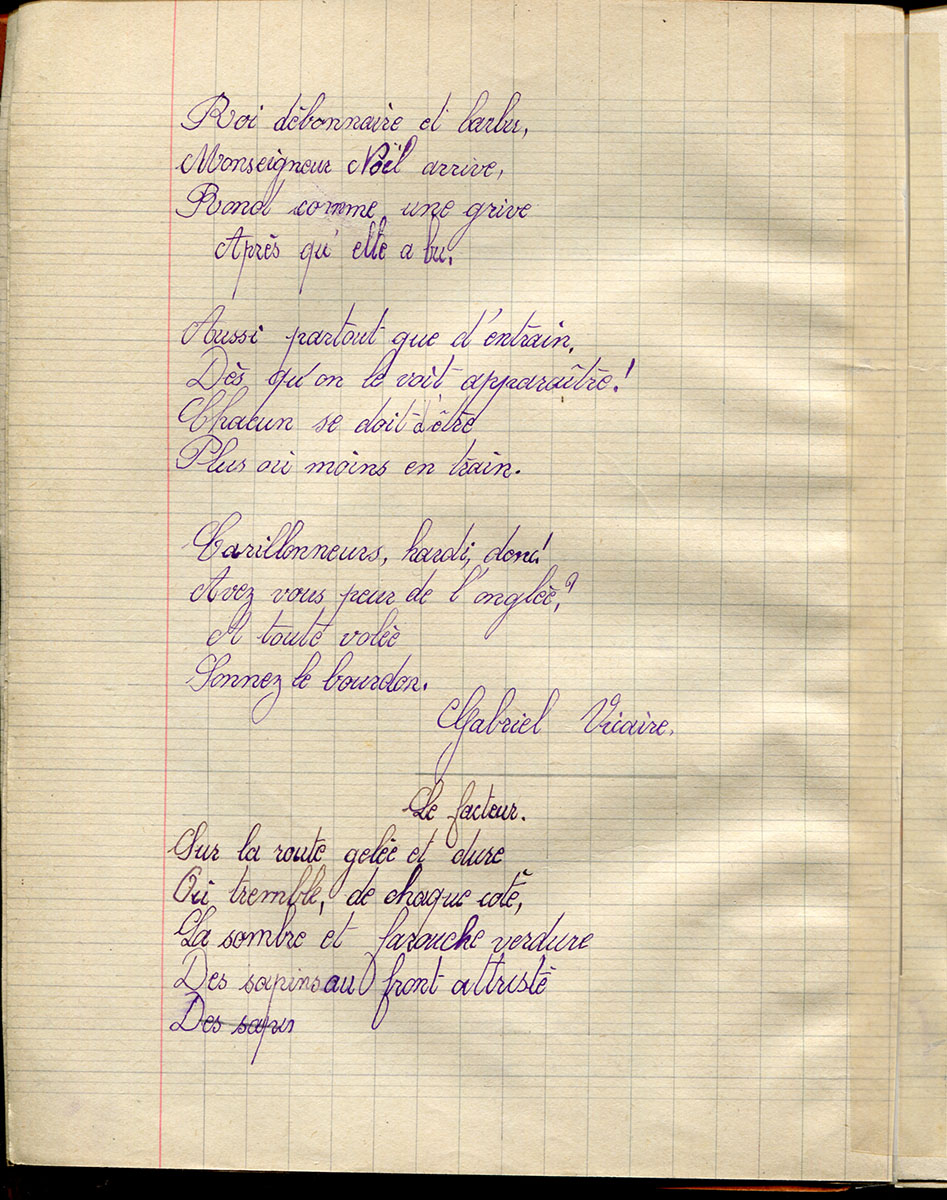 Roi débonnaire et barbu,
Monseigneur Noël arrive,
Rond comme une grive
Après qu'elle a bu.
Aussi partout que d'entrain,
Dès qu'on le voit apparaître!
Chacun se doit d'être
Plus ou moins en train.
Carillonneurs, hardi, donc!
Avez vous peur de l'onglée,?
A toute volée
Sonnez le bourdon.
Gabriel Vicaire.
Le facteur.
Sur la route gelée et dure
Où tremble, de chaque coté,
La sombre et farouche verdure
Des sapins au front attristé
Des sapin